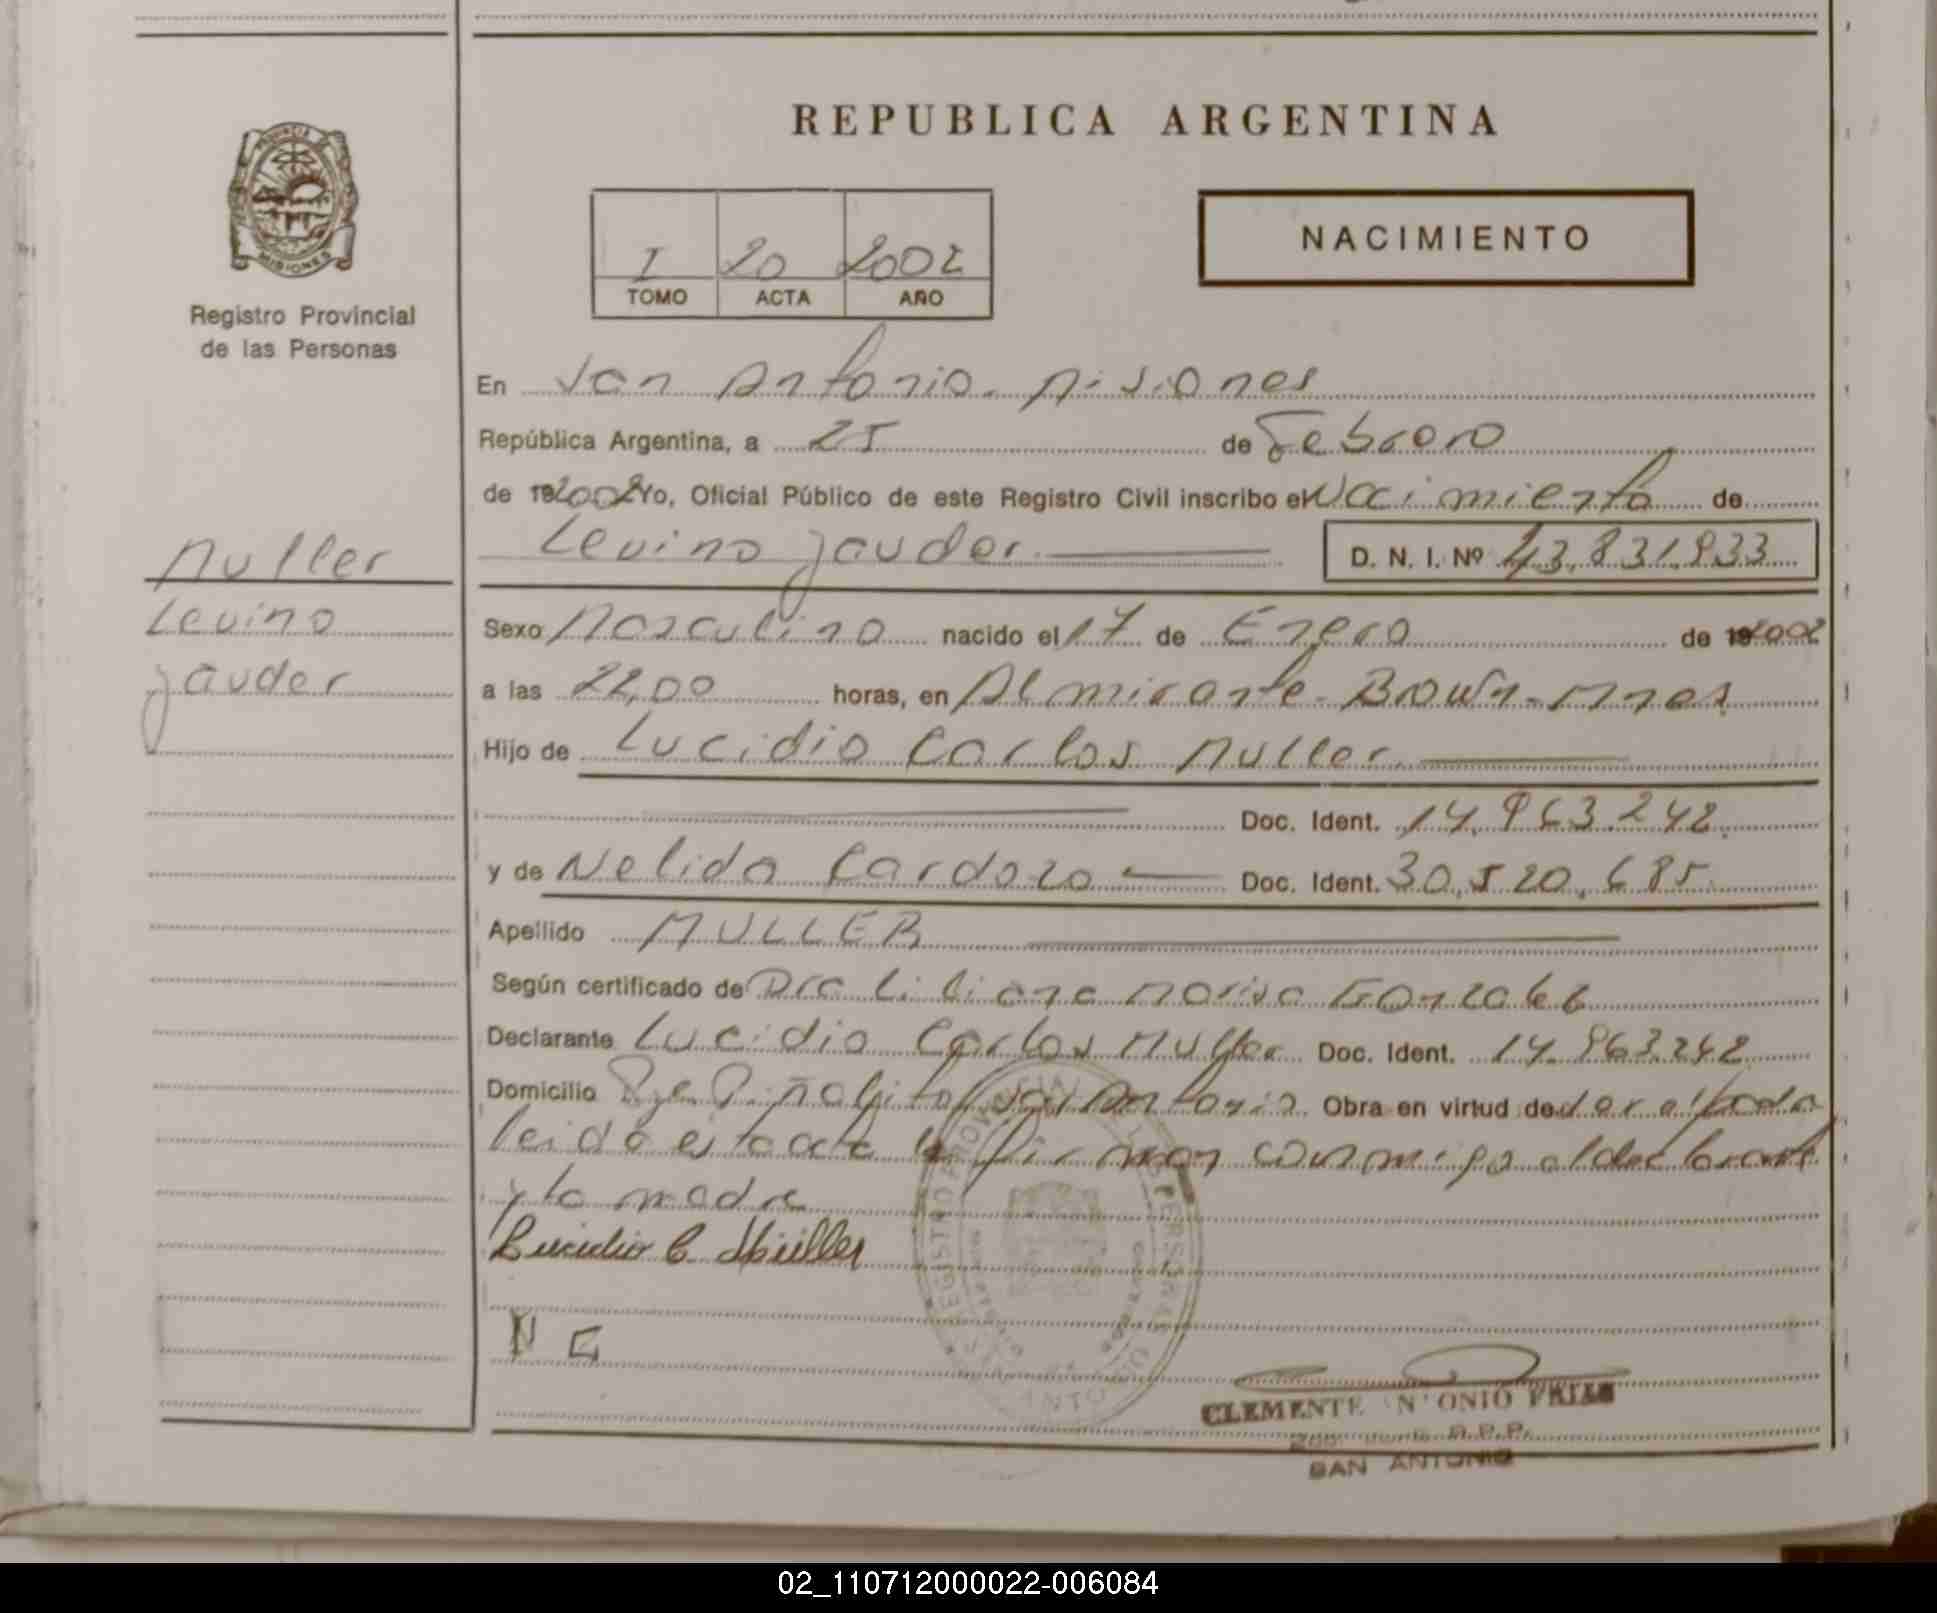 REPUBLICA ARGENTINA
PROVINCIA DE
MISIONES
Registro Provincial
de las Personas
I 20 2002
TOMO ACTA AÑO
NACIMIENTO
En San Antonio - Misiones
República Argentina, a 25 de Febrero
de 192002 Yo, Oficial Público de este Registro Civil inscribo el Nacimiento de
Levino Jauder D. N. I. Nº 43.831.933
Muller
Levino
Jauder
Sexo Masculino nacido el 17 de Enero de 192002
a las 22,00 horas, en Almirante - Brown - Mnes.
Hijo de Lucidio Carlos Muller
Doc. Ident. 14.963.242
y de Nelida Cardozo Doc. Ident. 30.520.685
Apellido MULLER
Según certificado de Dra Liliana Marisa Gonzalez
Declarante Lucidio Carlos Muller Doc. Ident. 14.963.242
Domicilio Pje Piñalito San Antonio Obra en virtud de
leido el acta la firman conmigo el declarante
y la madre
Lucidio C. Müller
N C
REGISTRO PROVINCIAL DE LAS PERSONAS
SAN ANTONIO
CLEMENTE N ONIO
R.P.P.
SAN ANTONIO
02_110712000022-006084